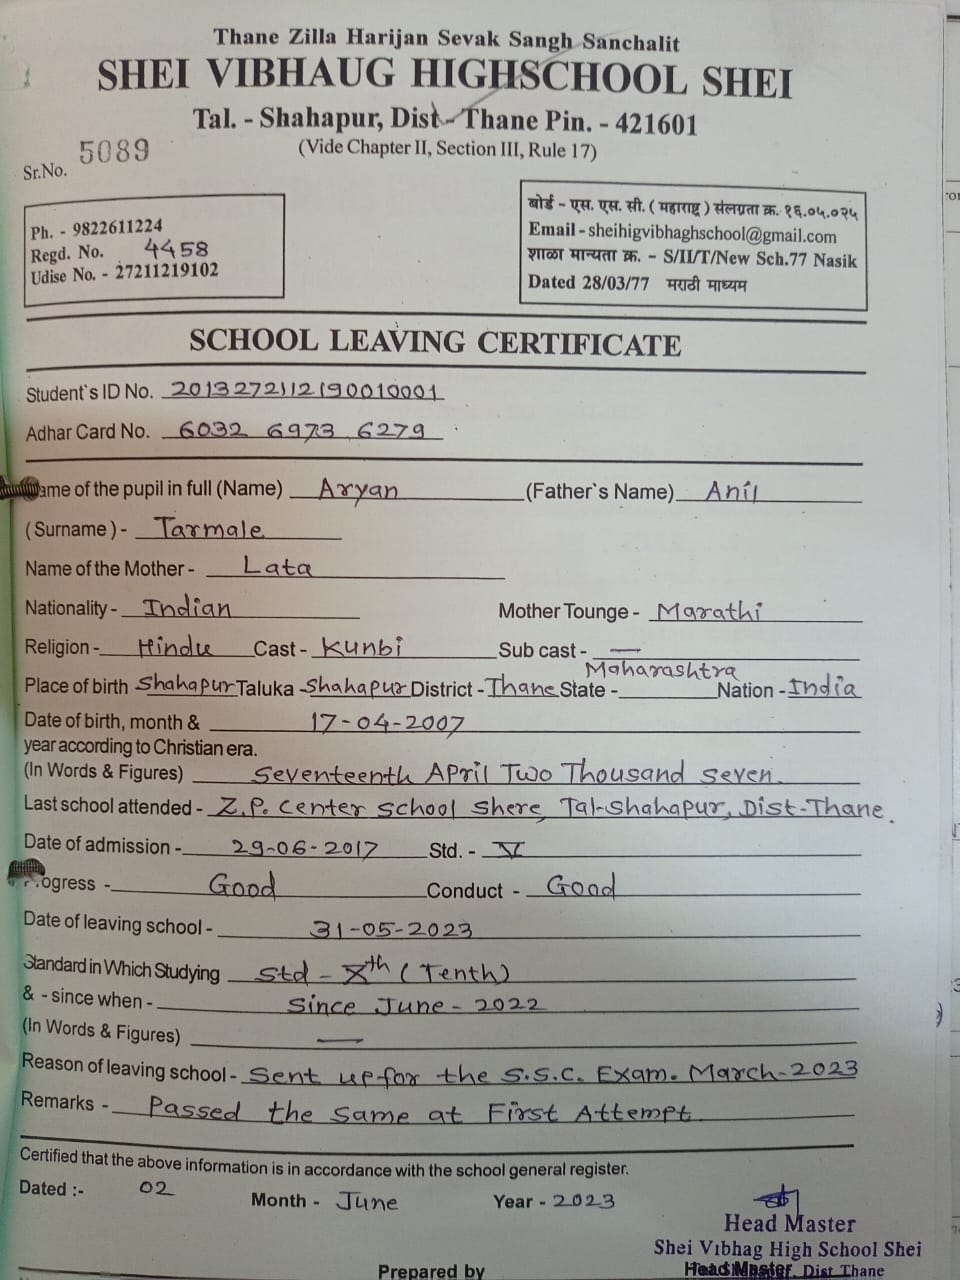 Thane Zilla Harijan Sevak Sangh Sanchalit
SHEI VIBHAUG HIGHSCHOOL SHEI
Tal. - Shahapur, Dist - Thane Pin. - 421601
(Vide Chapter II, Section III, Rule 17)
Sr.No. 5089
Ph. - 9822611224
Regd. No. 4458
Udise No. - 27211219102
बोर्ड - एस. एस. सी. ( महाराष्ट्र ) संलग्नता क्र. १६.०५.०२५
Email - sheihigvibhaghschool@gmail.com
शाळा मान्यता क्र. - S/II/T/New Sch.77 Nasik
Dated 28/03/77 मराठी माध्यम
SCHOOL LEAVING CERTIFICATE
Student`s ID No. 2013272112190010001
Adhar Card No. 6032 6973 6279
ame of the pupil in full (Name) Aryan (Father`s Name) Anil
( Surname ) - Tarmale
Name of the Mother - Lata
Nationality - Indian Mother Tounge - Marathi
Religion - Hindu Cast - Kunbi Sub cast - —
Place of birth Shahapur Taluka - Shahapur District - Thane State - Maharashtra Nation - India
Date of birth, month & 17-04-2007
year according to Christian era.
(In Words & Figures) Seventeenth April Two Thousand Seven.
Last school attended - Z.P. Center School Shere, Tal-Shahapur, Dist-Thane.
Date of admission - 29-06-2017 Std. - V
rogress - Good Conduct - Good
Date of leaving school - 31-05-2023
Standard in Which Studying Std - Xth (Tenth)
& - since when - Since June - 2022
(In Words & Figures) —
Reason of leaving school - Sent up for the S.S.C. Exam. March-2023
Remarks - Passed the same at First Attempt
Certified that the above information is in accordance with the school general register.
Dated :- 02 Month - June Year - 2023
Head Master
Shei Vibhag High School Shei
Prepared by Head Master Dist Thane